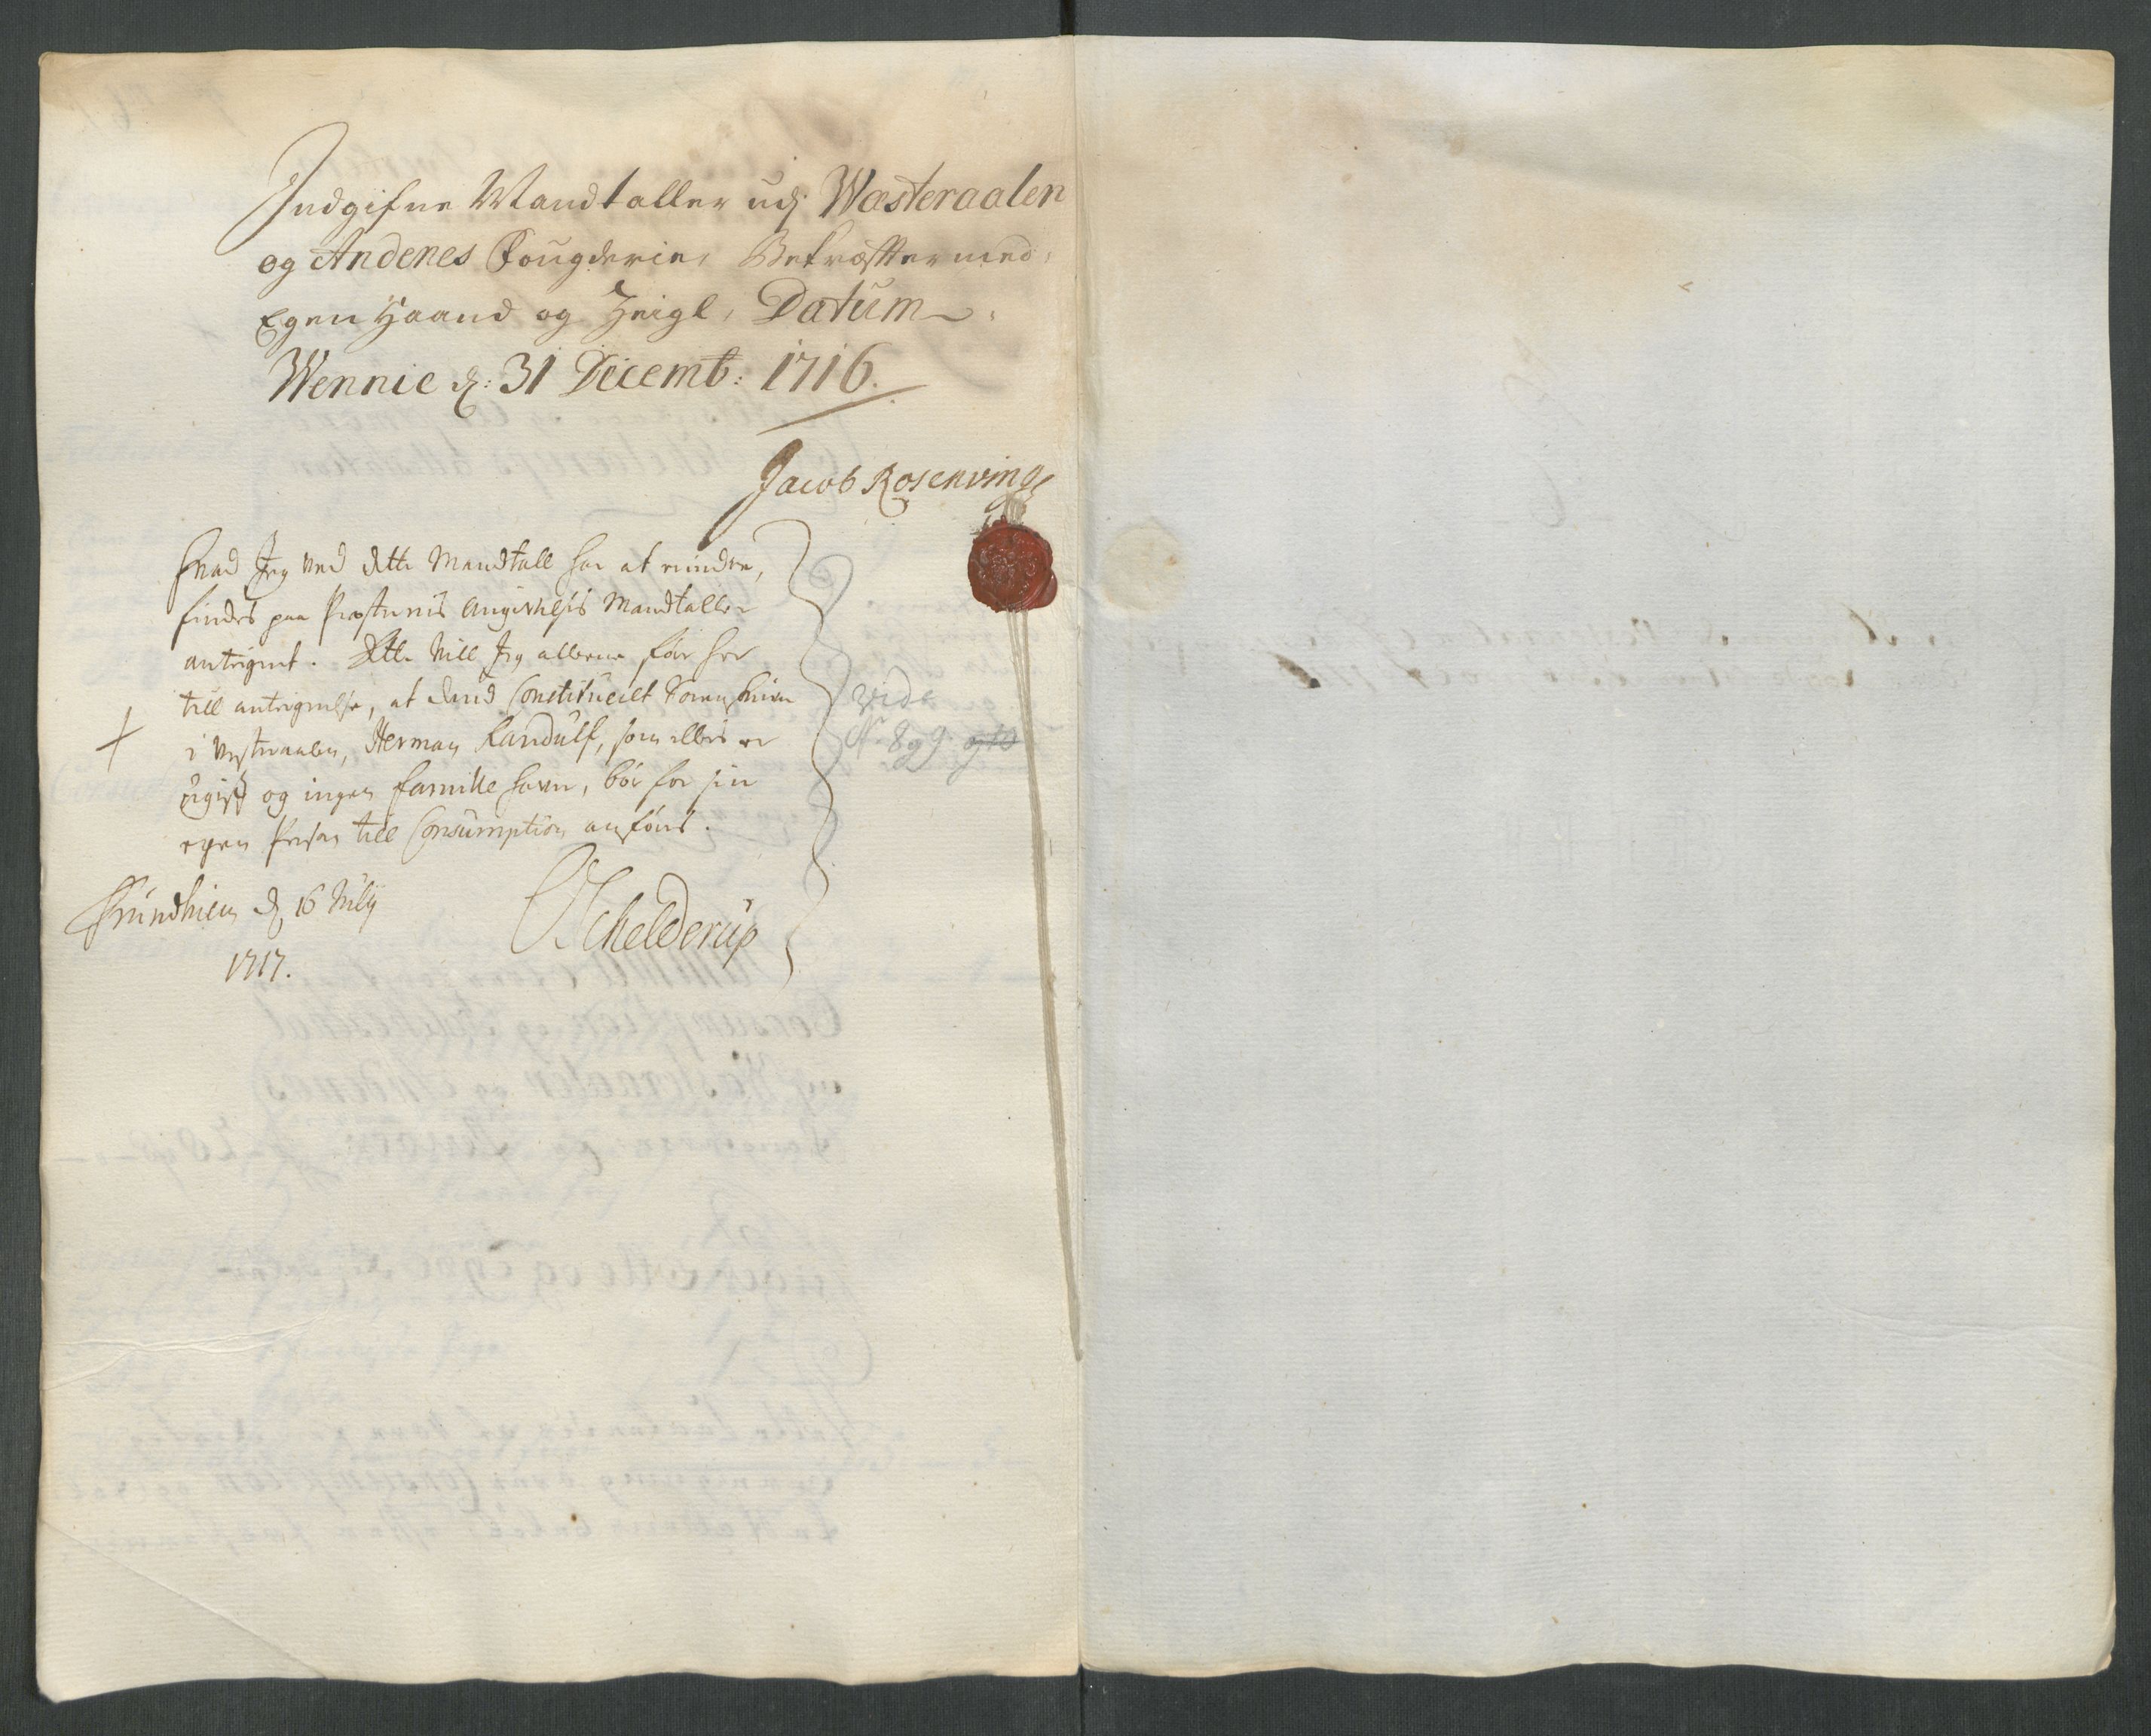 Indgifne Mandtaller udj Wæsteraalen
og Andenes Fougderie, Bekræfter med
Egen Haand og Zeigl, Datum
Wennie d: 31 Decemb: 1716.
Jacob Rosenvinge
Hvad Jeg ved dette Mandtall har at erindre,
findes paa Præsternis Angivelsis Mandtaller
antegnet. Dette vill Jeg alleene føie her
till antegnelse, at dend Constitueret Sorenskriver
i Westeraalen, Herman Randulf, som ellers er
ugift og ingen familie haver, bør for sin
egen Person till Consumption anføris.
Trundhiem d 16 July
1717.
Schelderup
vide
N. 8 og 9.